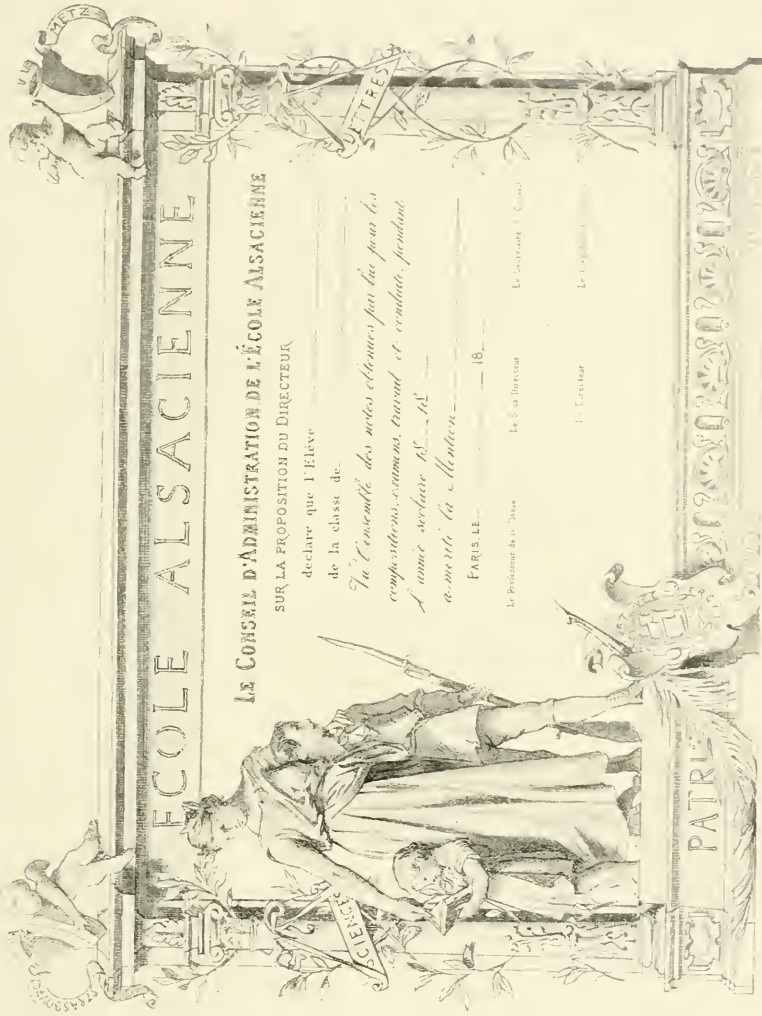 STRASBOURG
METZ
ECOLE ALSACIENNE
SCIENCES
LETTRES
LE CONSEIL D'ADMINISTRATION DE L'ÉCOLE ALSACIENNE
SUR LA PROPOSITION DU DIRECTEUR
déclare que l'Elève
de la classe de
Vu l'ensemble des notes obtenues par lui pour les
compositions, examens, travail et conduite, pendant
l'année scolaire 18 18
a mérité la Mention
PARIS, LE 18
Le Professeur de la Classe Le Sous Directeur Le Secrétaire du
Le Directeur Le
PATRI